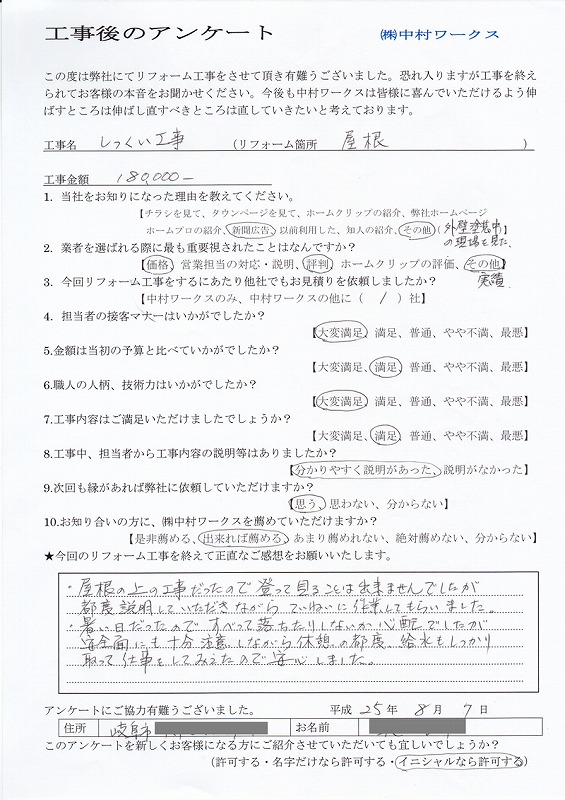 工事後のアンケート ㈱中村ワークス
この度は弊社にてリフォーム工事をさせて頂き有難うございました。恐れ入りますが工事を終え
られてお客様の本音をお聞かせください。今後も中村ワークスは皆様に喜んでいただけるよう伸
ばすところは伸ばし直すべきところは直していきたいと考えております。
工事名 しっくい工事 (リフォーム箇所 屋根 )
工事金額 180,000-
1. 当社をお知りになった理由を教えてください。
【チラシを見て、タウンページを見て、ホームクリップの紹介、弊社ホームページ
ホームプロの紹介、新聞広告、以前利用した、知人の紹介、その他(外壁塗装中
の現場を見た、
2. 業者を選ばれる際に最も重要視されたことはなんですか?
【価格、営業担当の対応・説明、評判、ホームクリップの評価、その他】
実績
3. 今回リフォーム工事をするにあたり他社でもお見積りを依頼しましたか?
【中村ワークスのみ、中村ワークスの他に ( / ) 社】
4. 担当者の接客マナーはいかがでしたか?
【大変満足、満足、普通、やや不満、最悪】
5.金額は当初の予算と比べていかがでしたか?
【大変満足、満足、普通、やや不満、最悪】
6.職人の人柄、技術力はいかがでしたか?
【大変満足、満足、普通、やや不満、最悪】
7.工事内容はご満足いただけましたでしょうか?
【大変満足、満足、普通、やや不満、最悪】
8.工事中、担当者から工事内容の説明等はありましたか?
【分かりやすく説明があった、説明がなかった】
9.次回も縁があれば弊社に依頼していただけますか?
【思う、思わない、分からない】
10.お知り合いの方に、㈱中村ワークスを薦めていただけますか?
【是非薦める、出来れば薦める、あまり薦めれない、絶対薦めない、分からない】
★今回のリフォーム工事を終えて正直なご感想をお願いいたします。
・屋根の上の工事だったので登って見ることは出来ませんでしたが
都度説明していただきながら ていねいに作業してもらいました。
・暑い日だったので すべって落ちたりしないか心配でしたが
安全面にも十分注意しながら休憩の都度、給水もしっかり
取って仕事をしてみえたので安心しました。
アンケートにご協力有難うございました。 平成 25 年 8 月 7 日
住所 岐阜市 お名前
このアンケートを新しくお客様になる方にご紹介させていただいても宜しいでしょうか?
(許可する・名字だけなら許可する・イニシャルなら許可する)